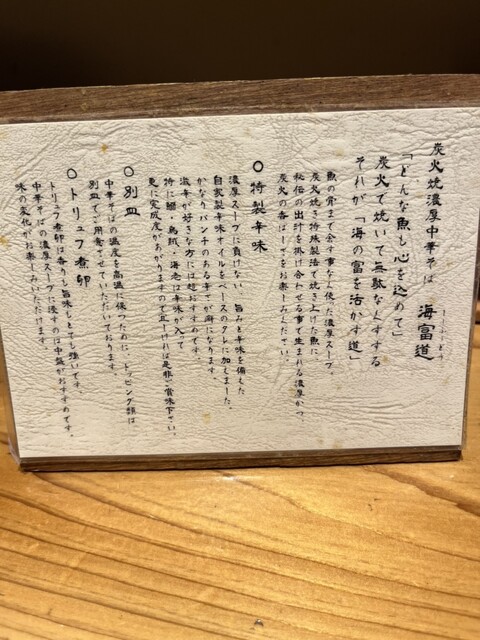 炭火焼濃厚中華そば 海富道
しーふーどう
「どんな魚も心を込めて」
炭火で焼いて無駄なくすする
それが「海の富を活かす道」
魚の骨まで余す事なく使った濃厚スープ。
炭火焼き特殊製法で焼き上げた魚に
秘伝の出汁を掛け合わせる事で生まれる濃厚かつ、
炭火の香ばしーさをお楽しみください。
○特製辛味
濃厚スープに負けない、旨みと辛味を備えた
自家製辛味オイルをベースのタレに加えました。
かなりパンチのある辛さが癖になります。
激辛が好きな方には超おすすめです。
特に鯛・烏賊・海老は辛味が入って
更に完成度があがりますので宜しければ是非ご賞味下さい。
○別皿
中華そばの温度を高温に保つために、トッピング類は
別皿でご用意させていただいております。
○トリュフ煮卵
トリュフ煮卵は香りも旨味もとても強いです。
中華そばの濃厚スープに浸すのは中盤がおすすめです。
味の変化がお楽しみいただけます。